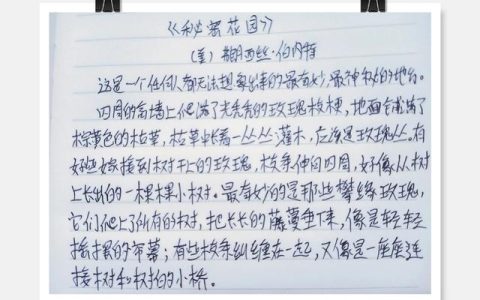 《秘密花园》
(美)弗朗西丝·伯内特
这是一个任何人都无法想象出来的最奇妙、最神秘的地方。
四周的高墙上爬满了光秃秃的玫瑰枝梗，地面全铺满了
棕黄色的枯草，枯草中长着一丛丛灌木，应该是玫瑰丛。有
好些嫁接到树干上的玫瑰，枝条伸向四周，好像从树
上长出的一棵棵小树。最奇妙的是那些攀缘玫瑰，
它们爬上了所有的树，把长长的藤蔓垂下来，像是轻轻
摇摆的帘幕；有些枝条纠缠在一起，又像是一座座连
接树和树的小桥。